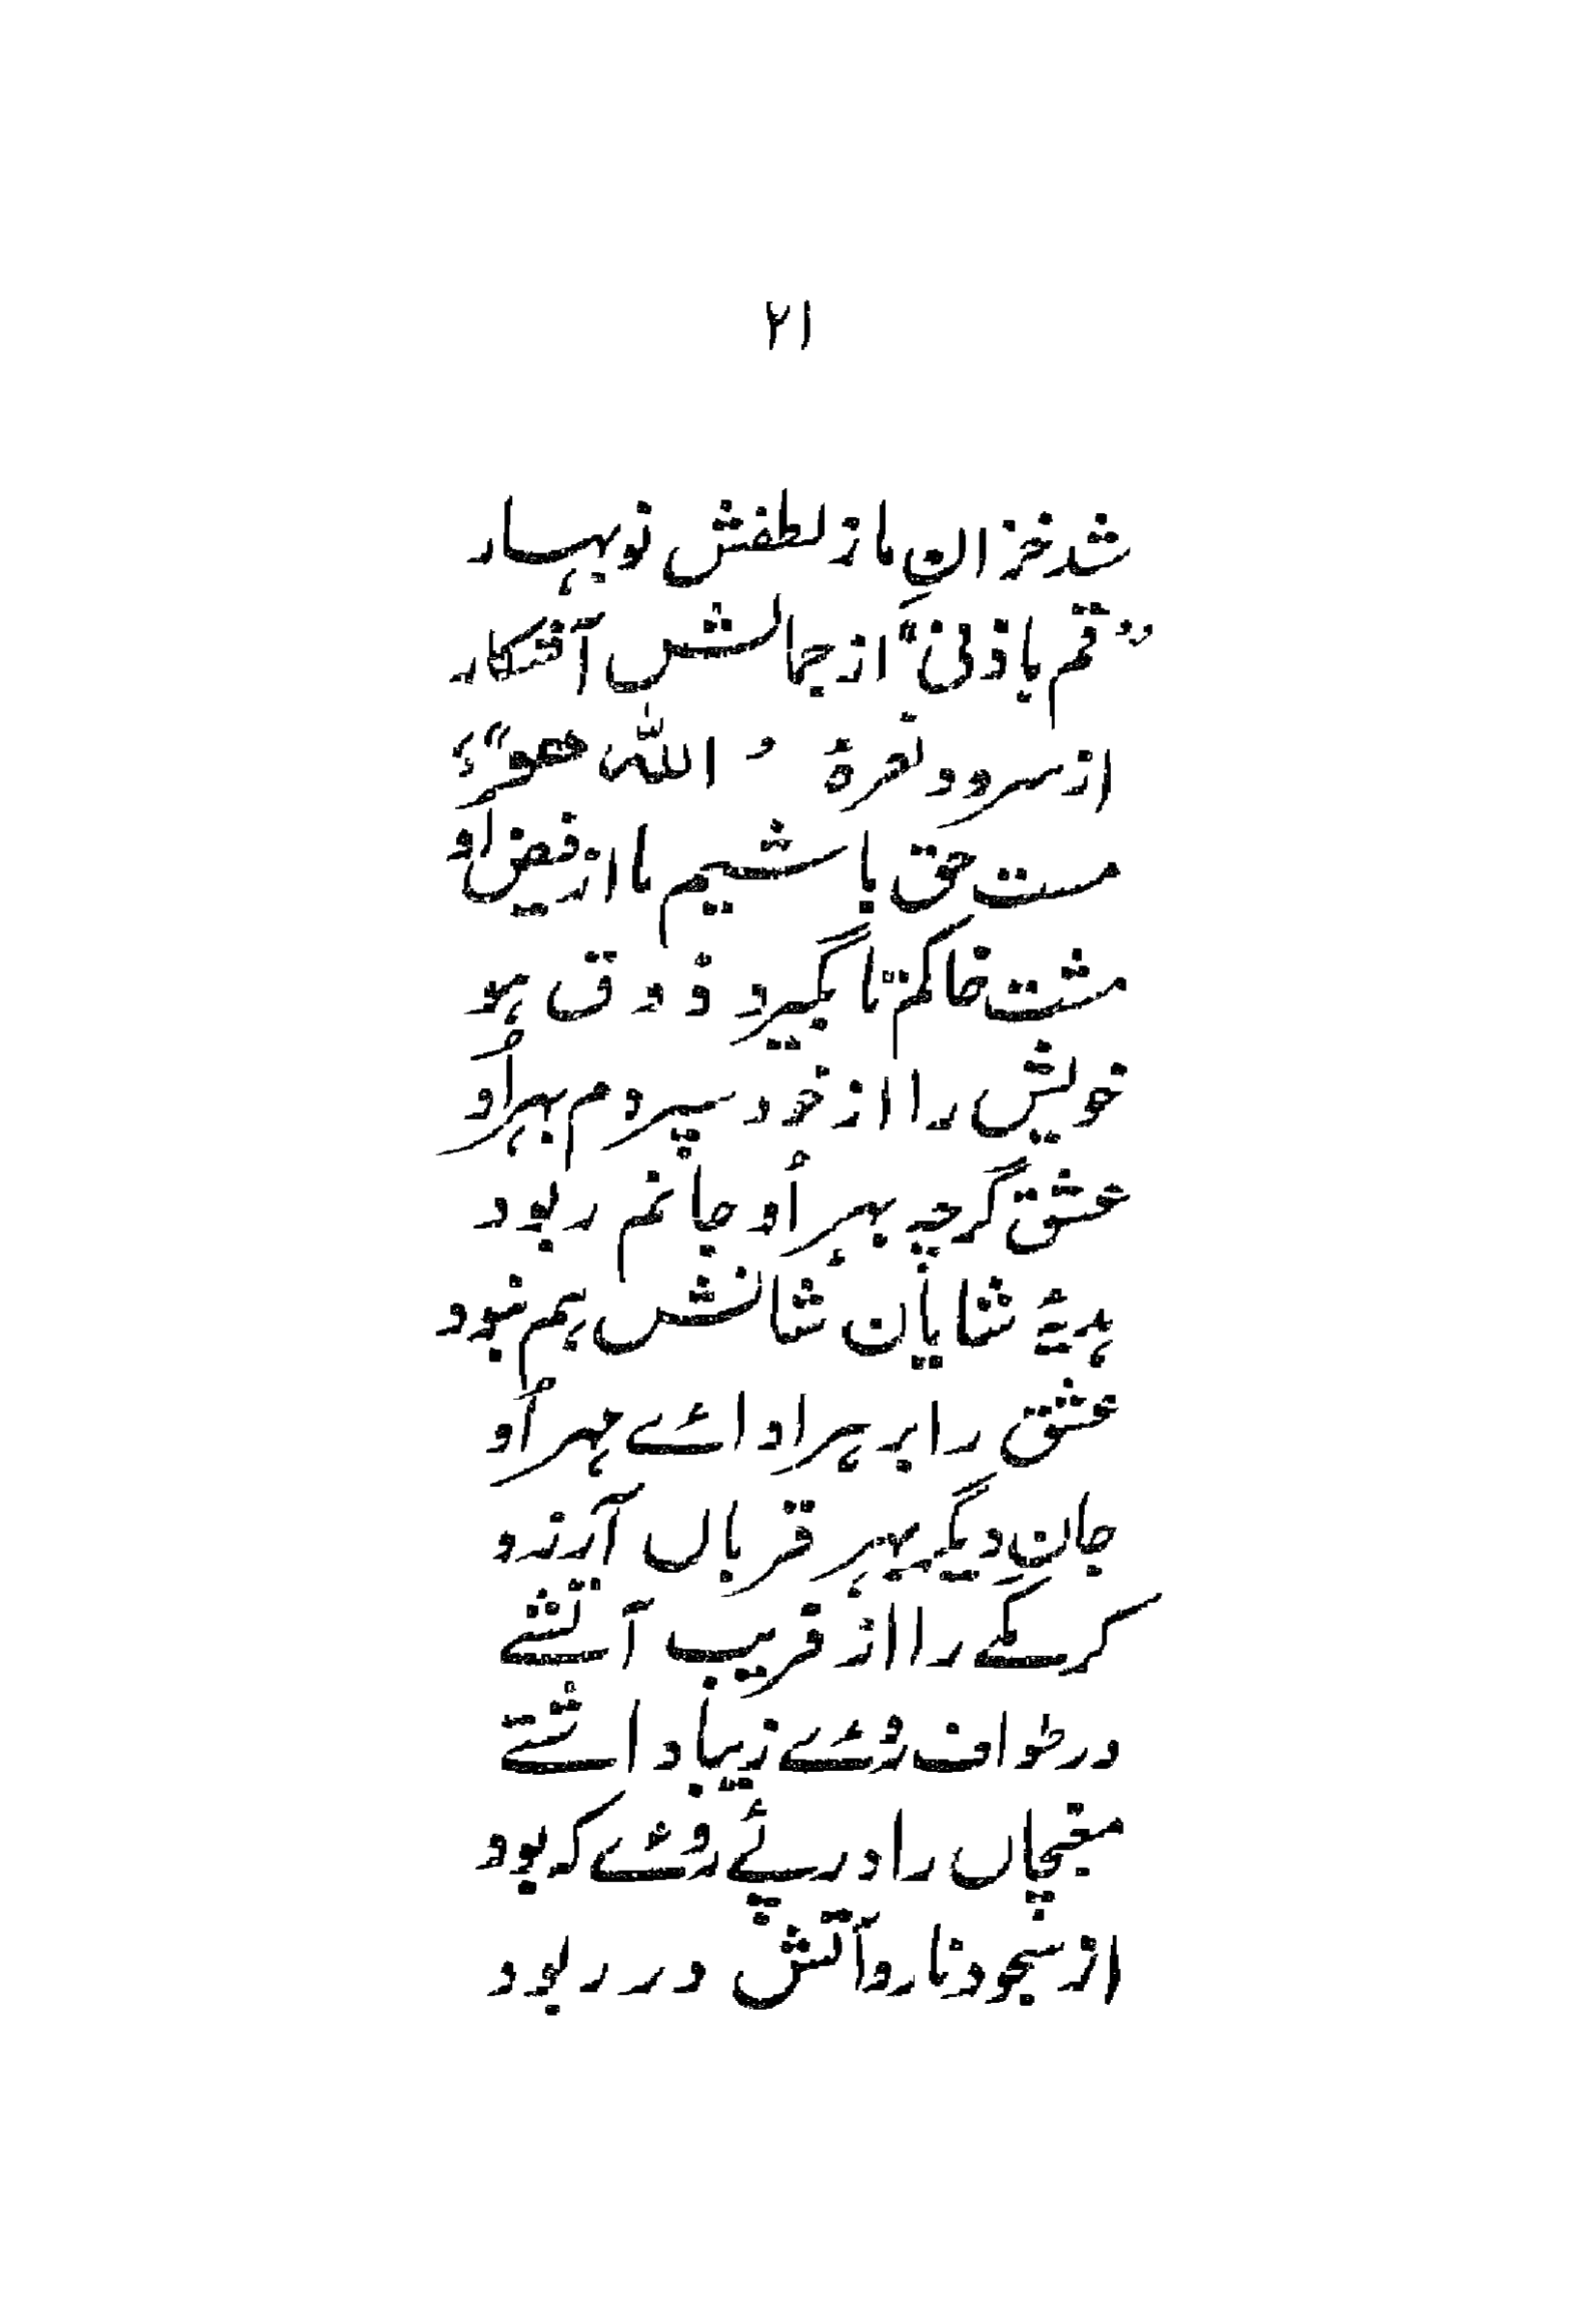 ۲۱
شد خزانِ ما ز لطفش نوبہار
"قم باذنی" از جمالش آشکار
از سرود و نعرۂ "اللہ ھو"
مست حق باشیم ما از فیضِ او
مشت خاکم تا بگیرد ذوق ہو
خویش را از خود سپردم بہرِ اُو
عشق گرچہ بہرِ اُو جانم ربود
ہدیۂ شایان شانش ہم نبود
عشق را بر ہر ادائے مہر اُو
جانِ دیگر بہر قرباں آرزو
کرمکے را از فریب آتشے
در طواف رُوئے زیبا داشتے
مغبچاں را در پئے رُوئے کہ بود
از سجود نار و آتش در ربود